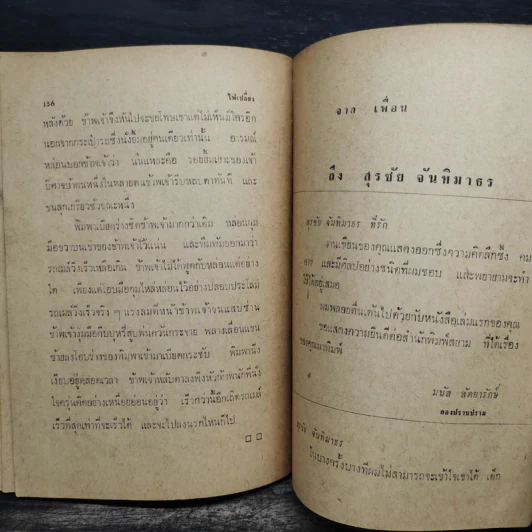 136
ไฟเปลี่ยง
หลังด้วย ข้าพเจ้าจึงหันไปจะขอโทษเขาแต่ไม่เห็นมีใครอีก
นอกจากกระเป๋ารถซึ่งนั่งอมอยู่คนเดียวเท่านั้น อารมณ์
หล่อนบอกข้าพเจ้าว่า นั่นแหละคือ รอยยิ้มเยาะของเจ้า
ปีศาจบ้าตนหนึ่งในหลายตน ข้าพเจ้ารีบหลบตาทันที และ
ขนลุกเกรียวชั่วขณะหนึ่ง
พิมพาเบียดร่างชิดข้าพเจ้ามากกว่าเดิม หล่อนกุม
มือขวาบนเขาของข้าพเจ้าไว้แน่น และพึมพัมออกมาว่า
รถเมล์วิ่งเร็วเหลือเกิน ข้าพเจ้าไม่ได้พูดกับหล่อนแต่อย่าง
ใด เพียงแต่โอบมือกุมไหล่หล่อนไว้อย่างปลอบประโลม
รถเมล์วิ่งเร็วจริง ๆ แรงลมตีหน้าข้าพเจ้าจนแสบซ่าน
ข้าพเจ้างุ่มง่ามมือกับบุหรี่สูบพ้นควันกระจาย พลางเอื้อมแขน
ซ้ายลงโอบร่างของพิมพาเข้ามาเบียดกระชับ พิมพานั่ง
เงียบอยู่ตลอดเวลา ข้าพเจ้าหลับตาลงพิงหัวกับพนักที่นั่ง
ใจครุ่นคิดอย่างเหนื่อยอ่อนอยู่ว่า เร็วกว่านี้อีกเถิดรถเมล์
เร็วที่สุดเท่าที่จะเร็วได้ และจะไปลงนรกไหนก็ไป
จาก เพื่อน
ถึง สุรชัย จันทิมาธร
สุรชัย จันทิมาธร ที่รัก
งานเขียนของคุณแสดงออกซึ่งความคิดลึกซึ้ง คม
คาย และมีศิลปอย่างชนิดที่ผมชอบ และพยายามจะทำ
ให้ได้อยู่เสมอ
ผมพลอยตื่นเต้นไปด้วยกับหนังสือเล่มแรกของคุณ
ขอแสดงความยินดีต่อสำนักพิมพ์สยาม ที่ได้เรื่อง
ของคุณมาพิมพ์
มนัส สัตยารักษ์
กองปราบปราม
สุรชัย จันทิมาธร
ในบางครั้งบางทีผมไม่สามารถจะเข้าใจเขาได้ เด็ก